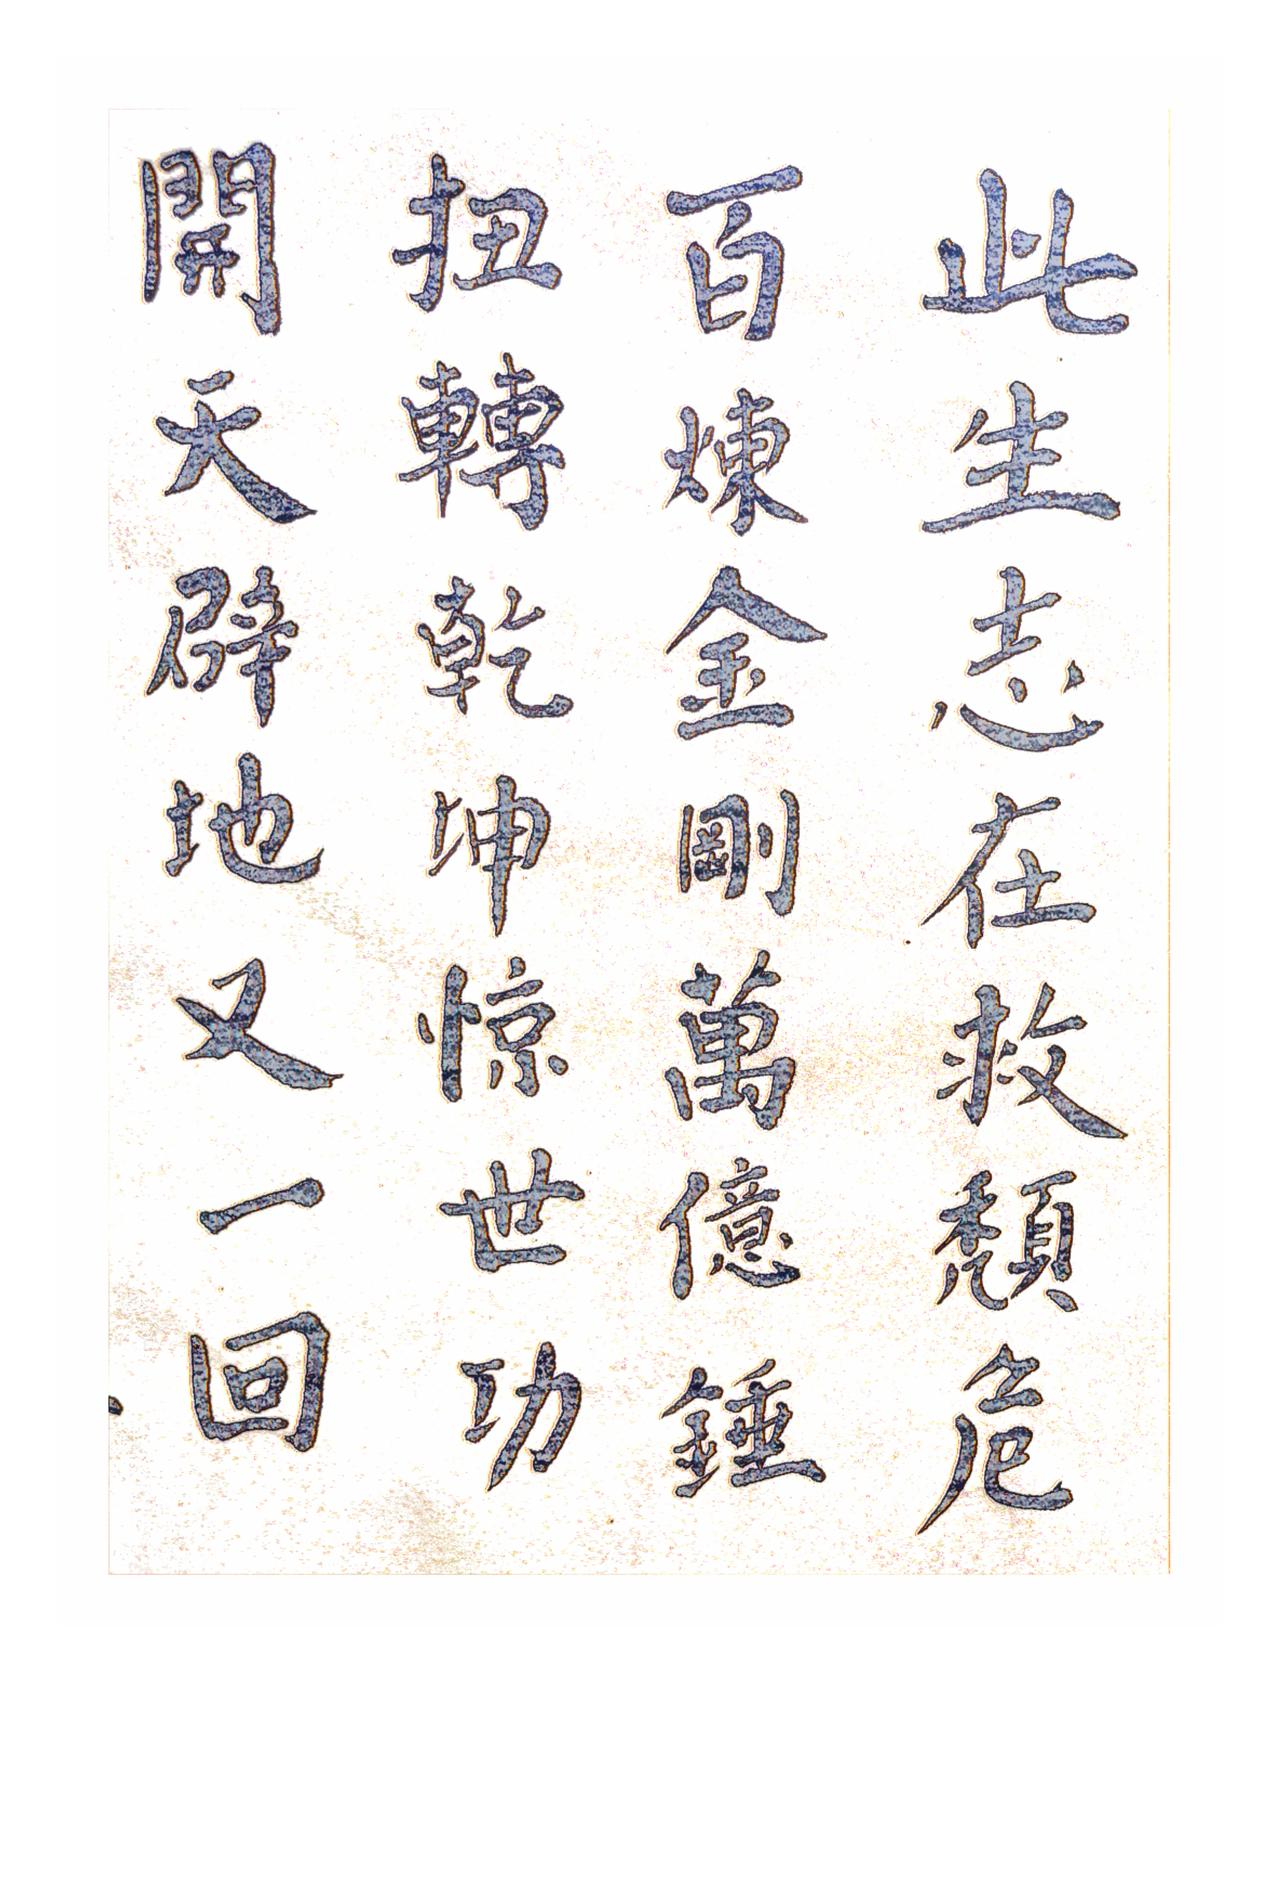 此生志在救頹危
百煉金剛萬億錘
扭轉乾坤惊世功
開天辟地又一回